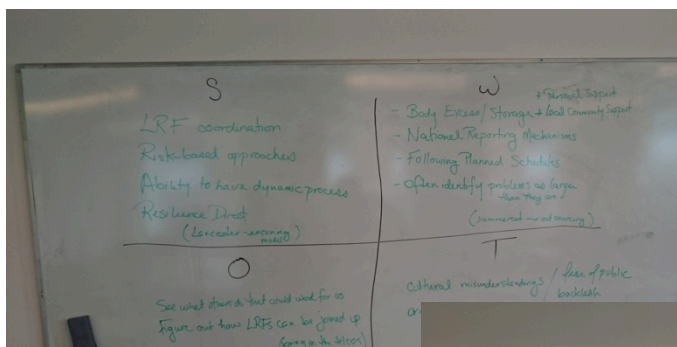 S
LRF coordination
Risk-based approaches
Ability to have dynamic process
Resilience Direct
W
+ Personal Support
- Body Excess / Storage + Local Community Support
- National Reporting Mechanisms
- Following Planned Schedules
- Often identify problems as larger
than they are
O
See what others do that could work for us
Figure out how LRFs can be joined up
T
Cultural misunderstandings / fear of public
backlash